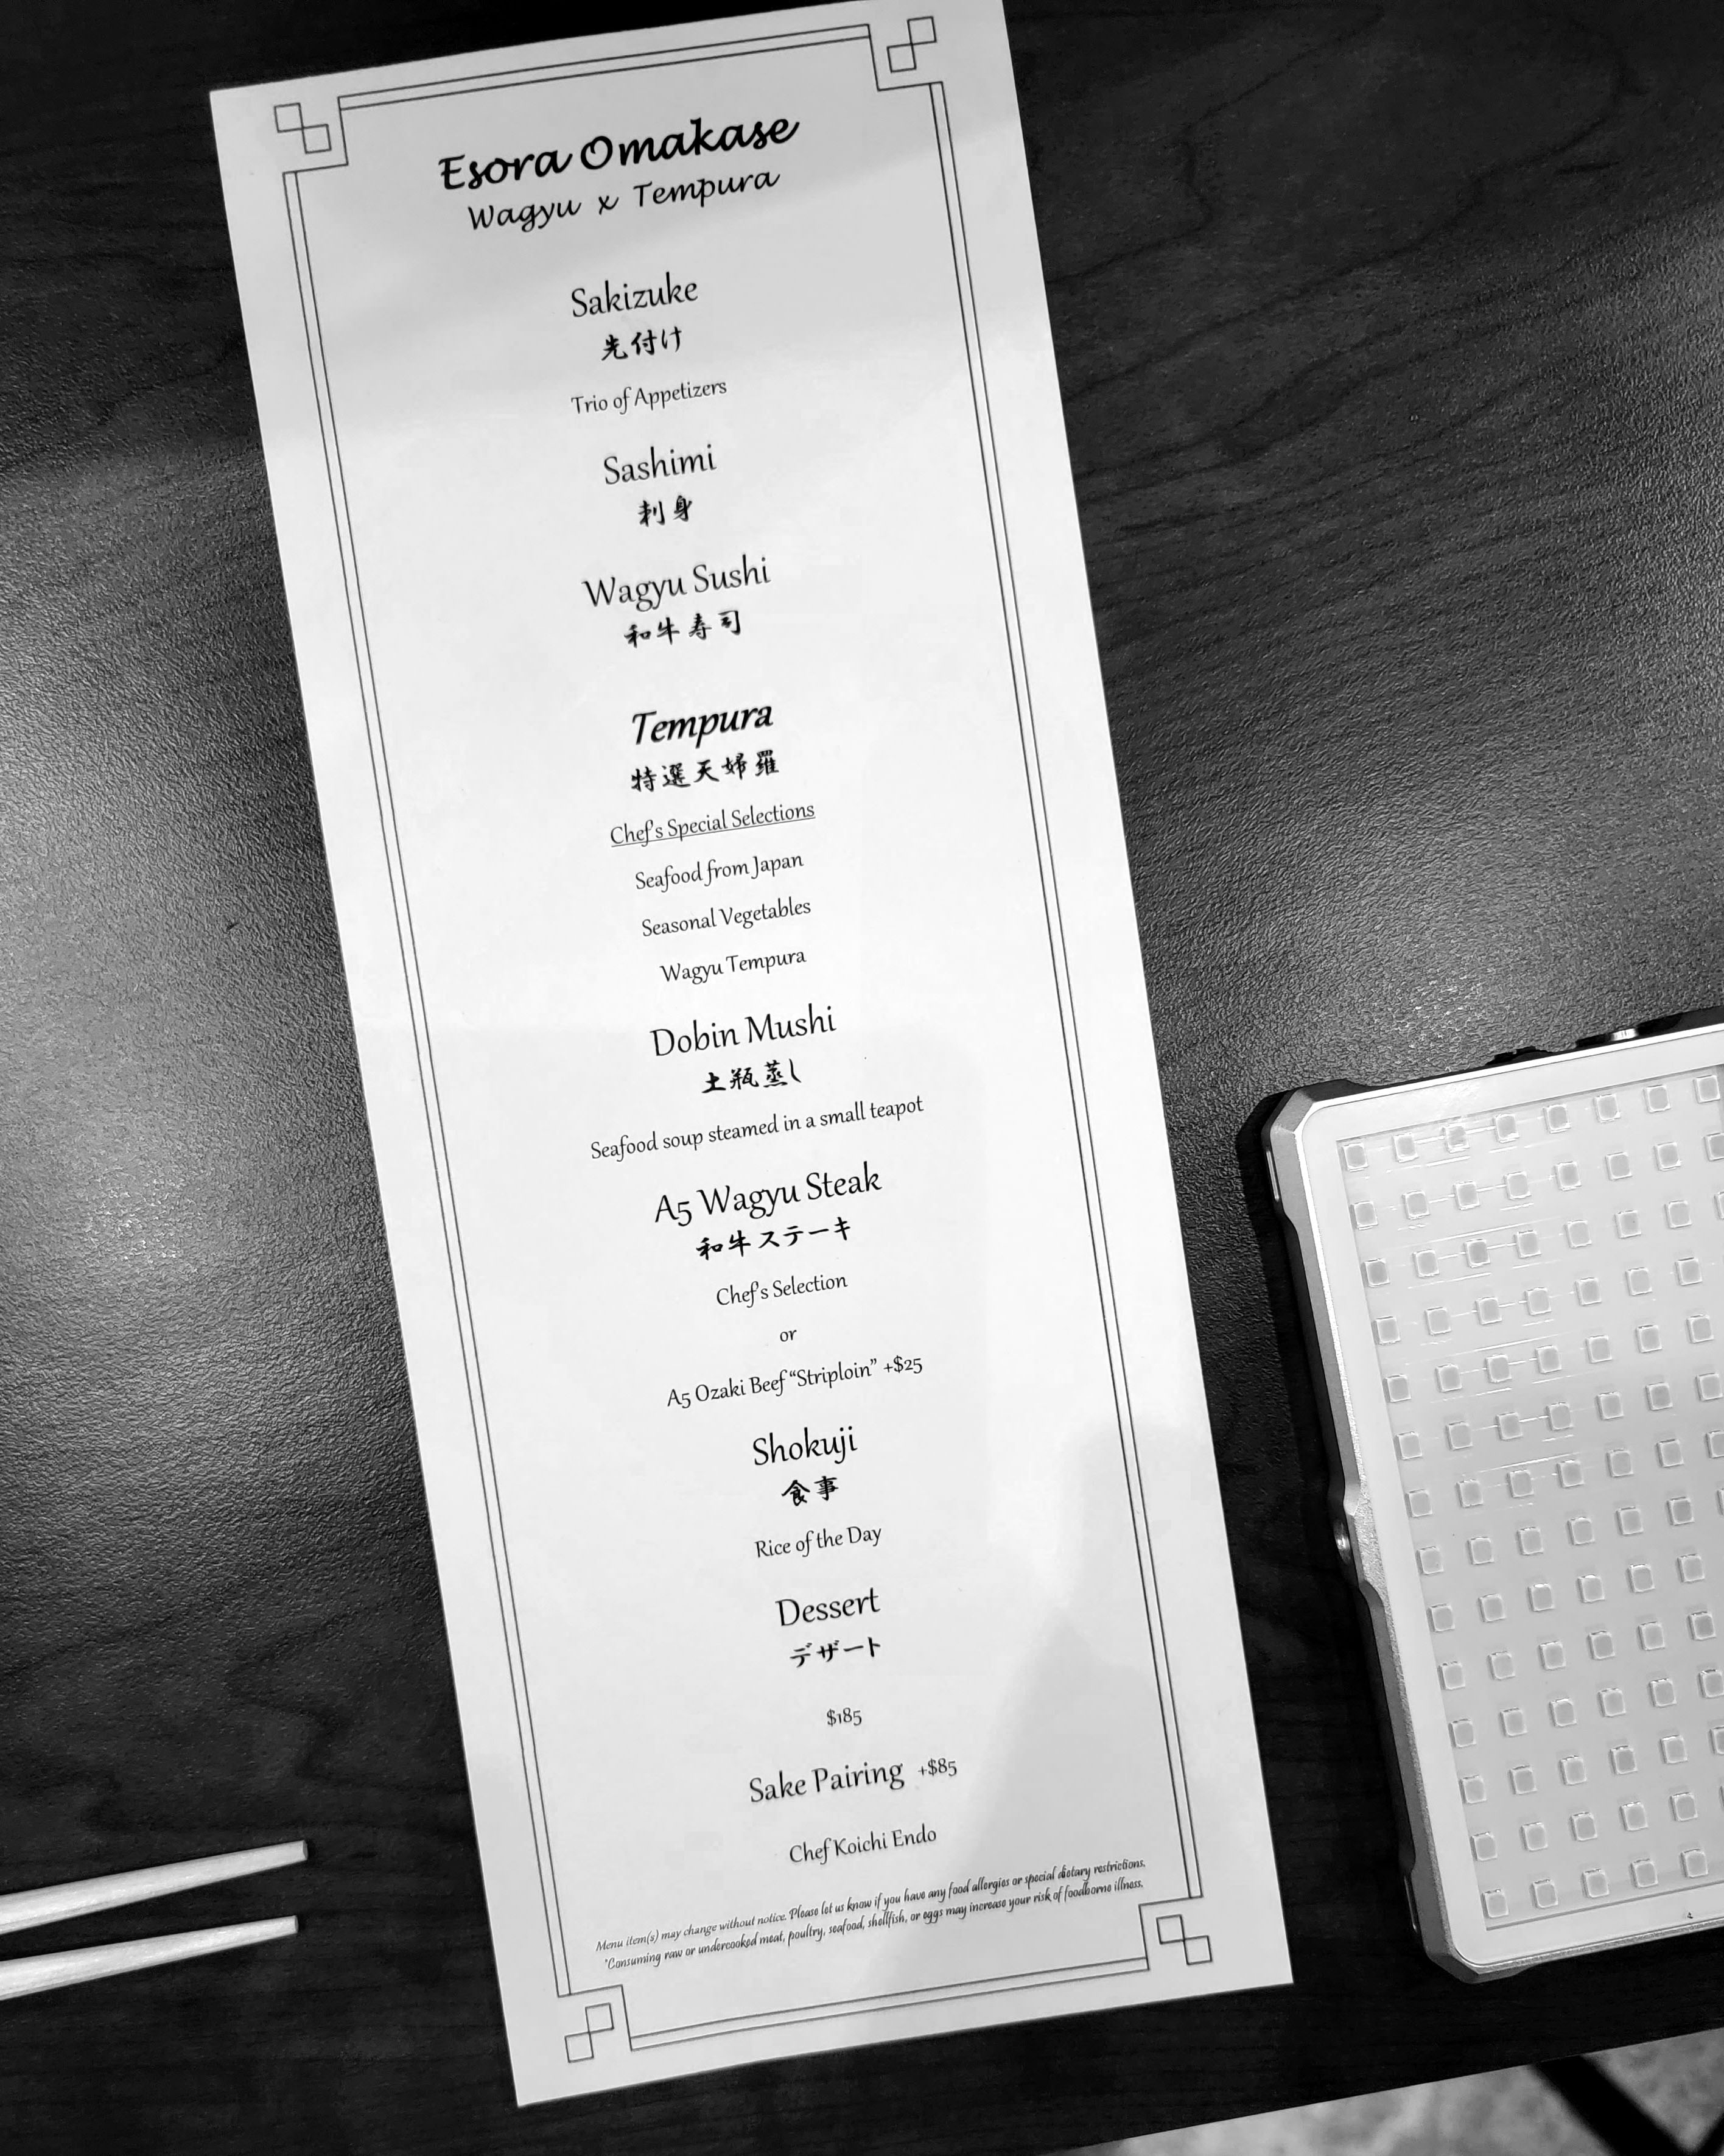 Esora Omakase
Wagyu x Tempura
Sakizuke
先付け
Trio of Appetizers
Sashimi
刺身
Wagyu Sushi
和牛寿司
Tempura
特選天婦羅
Chef's Special Selections
Seafood from Japan
Seasonal Vegetables
Wagyu Tempura
Dobin Mushi
土瓶蒸し
Seafood soup steamed in a small teapot
A5 Wagyu Steak
和牛ステーキ
Chef's Selection
or
A5 Ozaki Beef “Striploin” +$25
Shokuji
食事
Rice of the Day
Dessert
デザート
$185
Sake Pairing +$85
Chef Koichi Endo
Menu item(s) may change without notice. Please let us know if you have any food allergies or special dietary restrictions.
*Consuming raw or undercooked meat, poultry, seafood, shellfish, or eggs may increase your risk of foodborne illness.